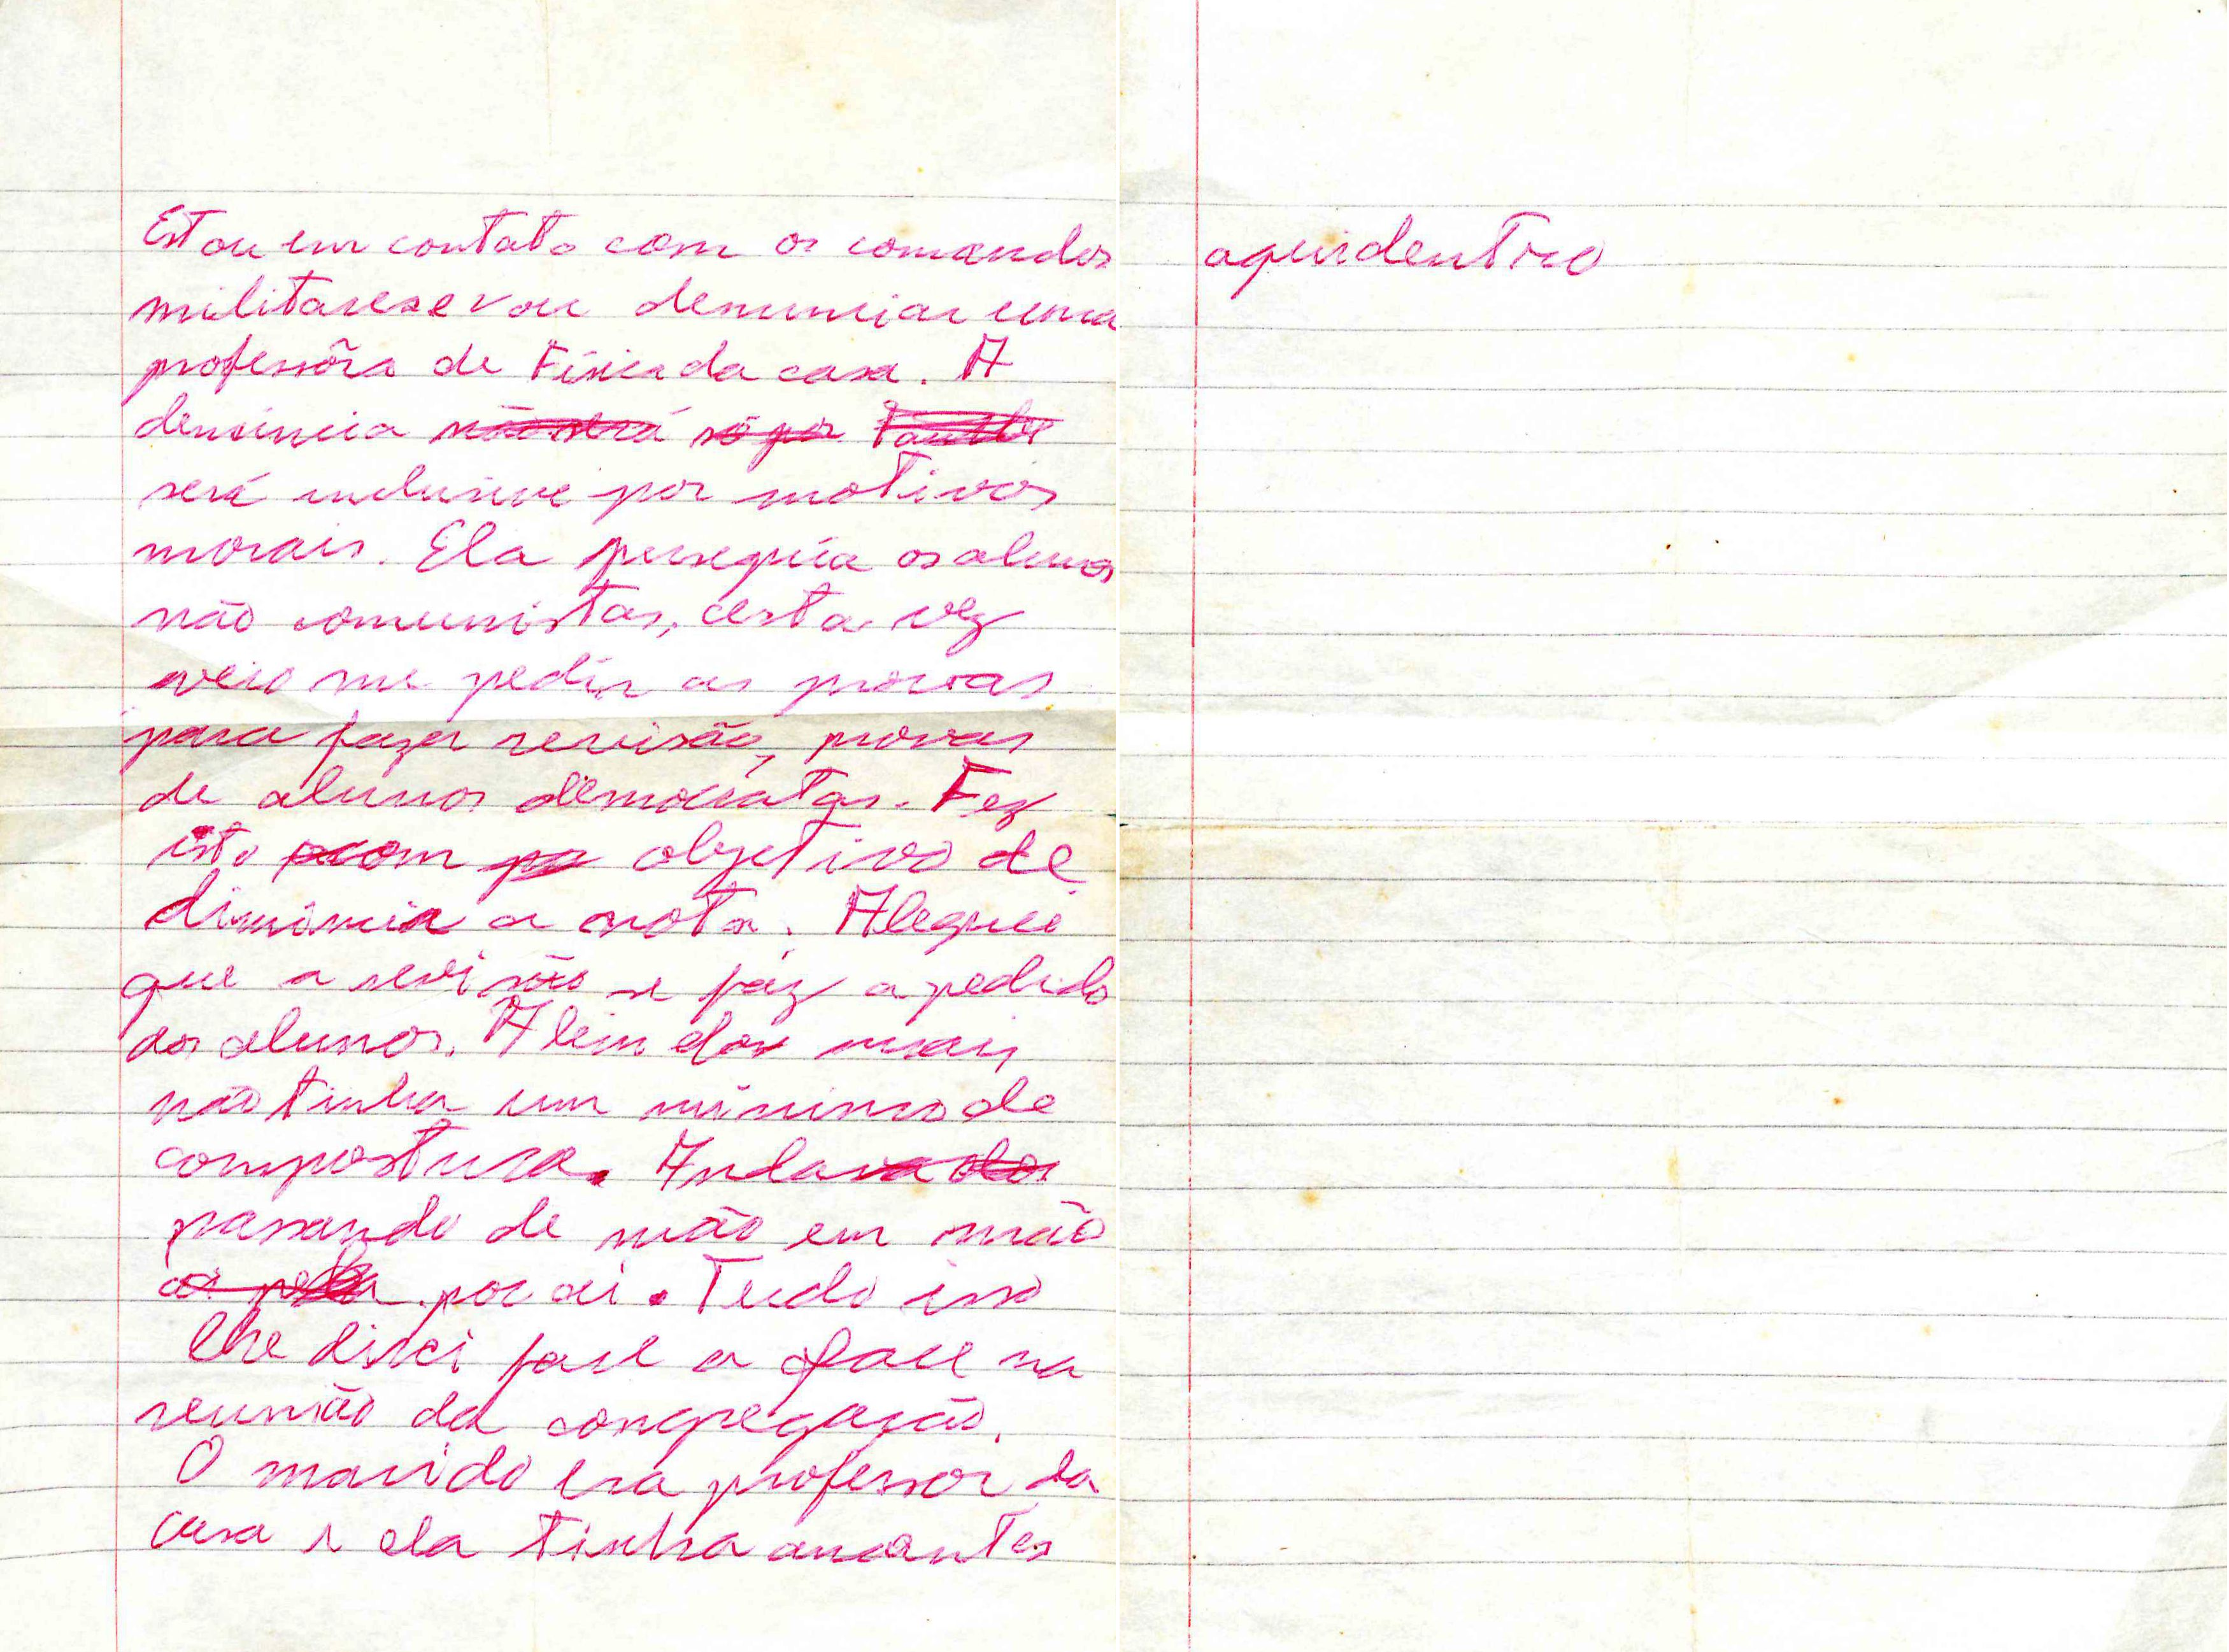 Estou em contato com os comandos
militares e vou denunciar uma
professôra de Física da casa. A
denúncia não será só por
será inclusive por motivos
morais. Ela perseguia os alunos
não comunistas, certa vez
veio me pedir as provas
para fazer revisão, provas
de alunos democratas. Fez
isto com objetivo de
diminuir a nota. Aleguei
que a revisão se faz a pedido
dos alunos. Além do mais
não tinha um mínimo de
compostura. Andava
passando de mão em mão
por aí. Tudo isso
lhe disse face a face na
reunião da congregação.
O marido era professor da
casa e ela tinha amantes
aqui dentro